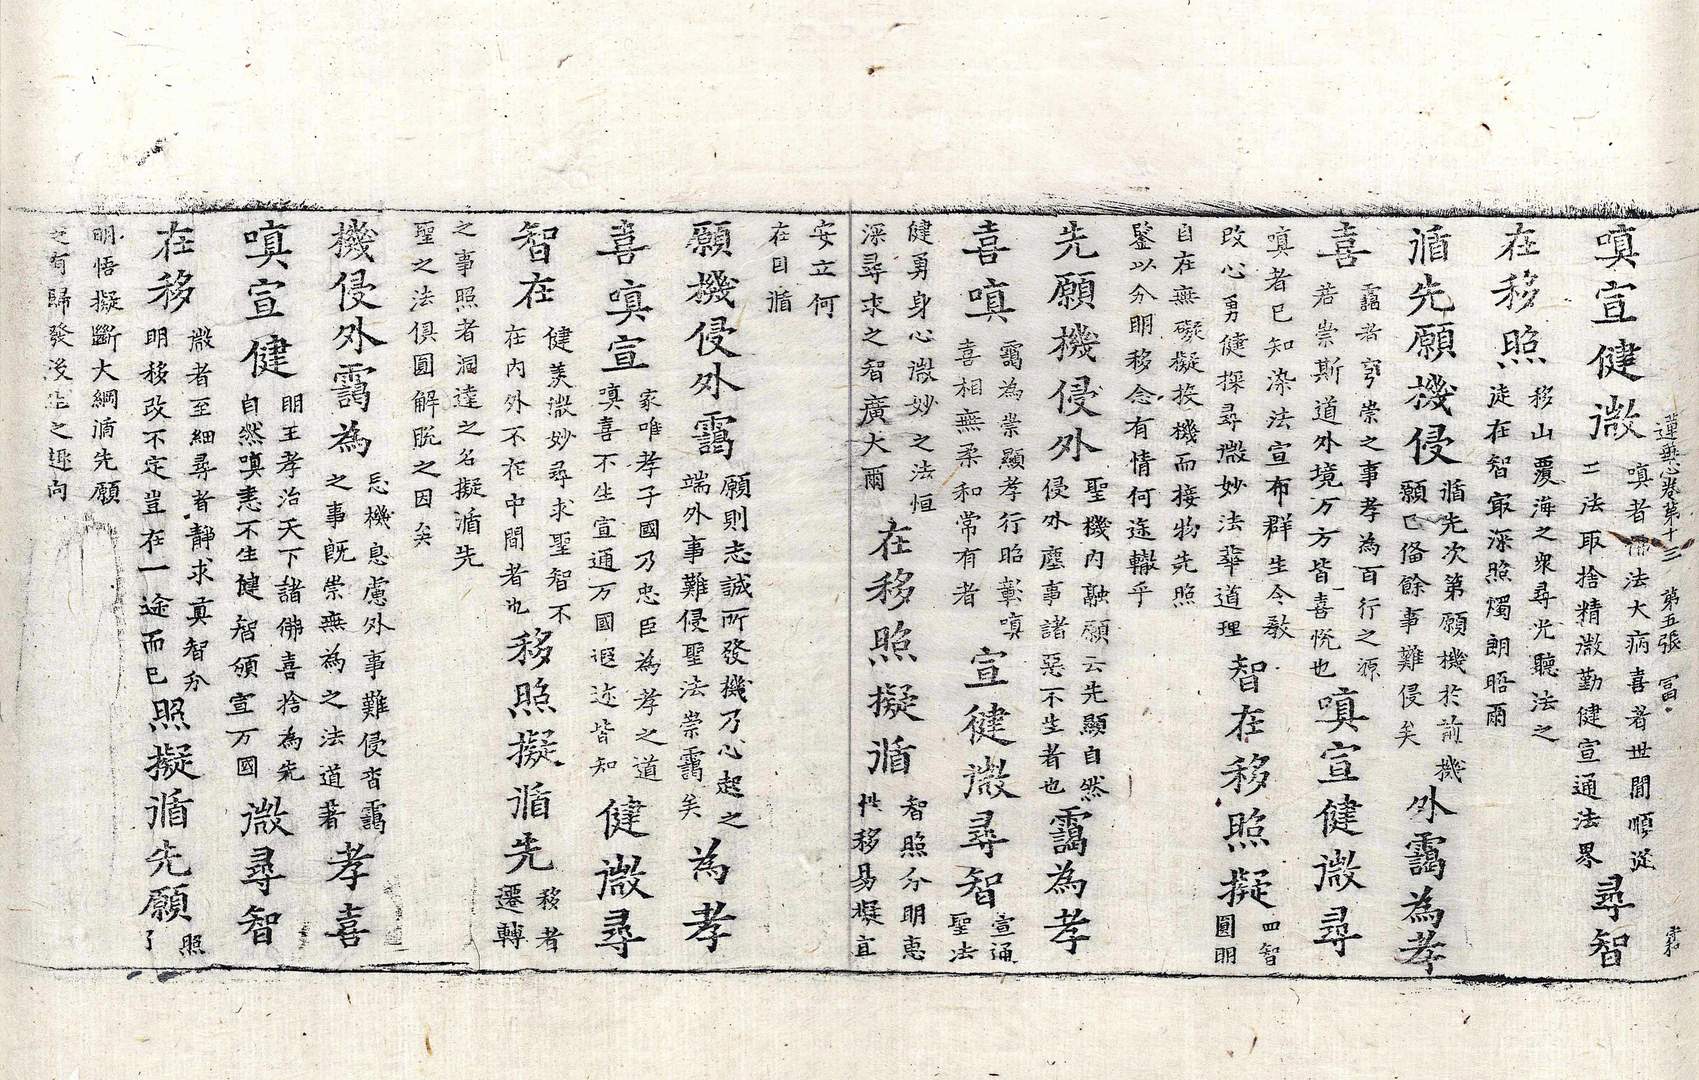 蓮華心卷第十三 第五張 冨
嗔宣健微 嗔者佛法大病喜著世間順從二法取捨精微勤健宣通法界 尋智
在移照 移山覆海之衆尋光聽法之徒在智㝡深照燭朗晤爾
循先願機侵 循先次第願機於前機願已俻餘事難侵矣 外靄為孝
喜 靄者窮崇之事孝為百行之源若崇斯道外境万方皆喜恱也 嗔宣健微尋
嗔者已知染法宣布群生今敎改心勇健探尋微妙法華道理 智在移照擬 四智圓明
自在無礙擬投機而接物先照鑒以分明移念有情何途轍乎
先願機侵外 聖機內融願云先顯自然侵外塵事諸惡不生者也 靄為孝
喜嗔 靄為崇顯孝行昭彰嗔喜相無柔和常有者 宣健微尋智 宣通聖法
健勇身心微妙之法恒深尋求之智廣大爾 在移照擬循 智照分明惠性移易擬宜
安立何在因循
願機侵外靄 願則志誠所發機乃心起之端外事難侵聖法崇靄矣 為孝
喜嗔宣 家唯孝子國乃忠臣為孝之道嗔喜不生宣通万國遐迩皆知 健微尋
智在 健羙微妙尋求聖智不在內外不在中間者也 移照擬循先 移者遷轉
之事照者洞達之名擬循先聖之法俱圓解脫之因矣
機侵外靄為 忘機息慮外事難侵沓靄之事旣崇無為之法道著 孝喜
嗔宣健 明王孝治天下諸佛喜捨為先自然嗔恚不生健智頒宣万國 微尋智
在移 微者至細尋者靜求真智分明移改不定豈在一途而已 照擬循先願 照了
明悟擬斷大綱循先願之有歸發後生之趣向